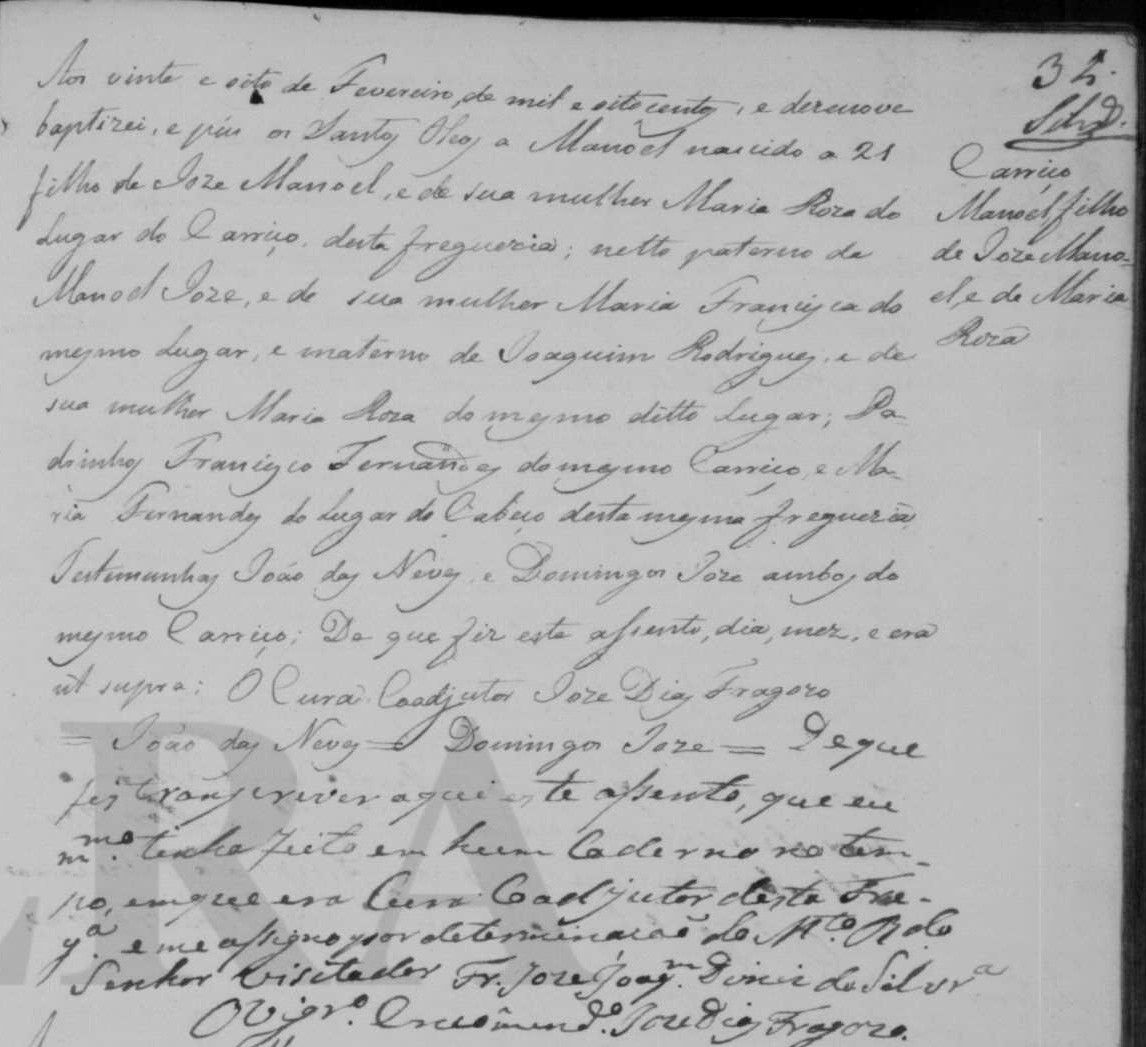 Aos vinte e oito de Fevereiro, de mil e oitocentos, e dezenove
baptizei, e púz os Santos Oleos a Manoel nascido a 21
filho de Joze Manoel, e de sua mulher Maria Roza do
Lugar do Carriço, desta freguezia; netto paterno de
Manoel Joze, e de sua mulher Maria Francisca do
mesmo Lugar, e materno de Joaquim Rodrigues, e de
sua mulher Maria Roza do mesmo ditto Lugar; Pa-
drinhos Francisco Fernandes do mesmo Carriço, e Ma-
ria Fernandes do Lugar do Cabeço desta mesma freguezia
Testemunhas João das Neves, e Domingos Joze ambos do
mesmo Carriço; De que fiz este assento, dia, mez, e era
ut supra: O Cura Coadjutor Joze Dias Fragozo
= João das Neves = Domingos Joze = De que
fiz transcriver aqui este assento, que eu
m.mo tinha feito em hum Caderno no tem-
po, em que era Cura Coadjutor desta Fre-
g.a e me assigno por determinação do M.to R.do
Senhor Visitador Fr. Joze Joaq.m Diniz da Silvr.a
O Vigr.o Encomend.o Joze Dias Fragozo.
34.
Carriço
Manoel filho
de Joze Mano-
el, e de Maria
Roza
ERA